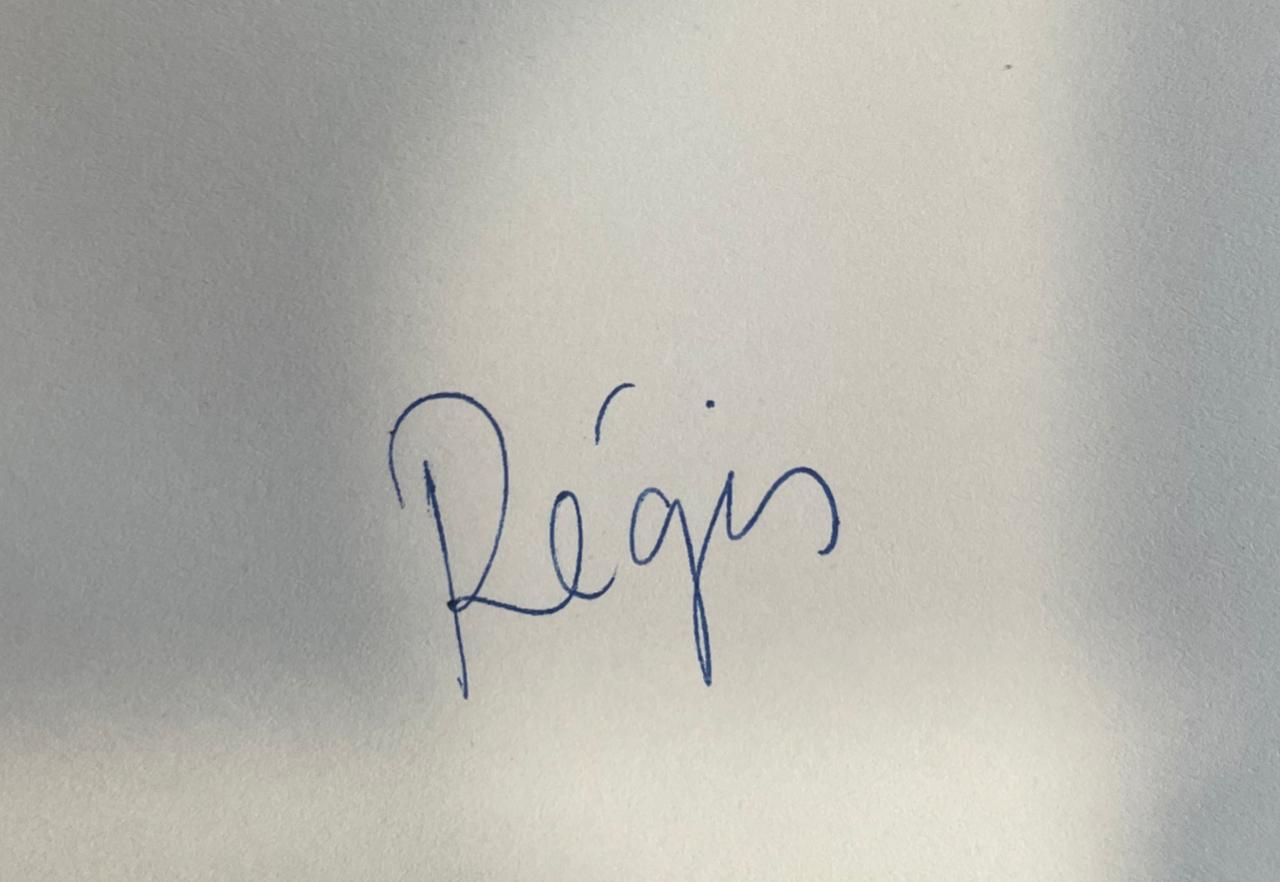 Régis